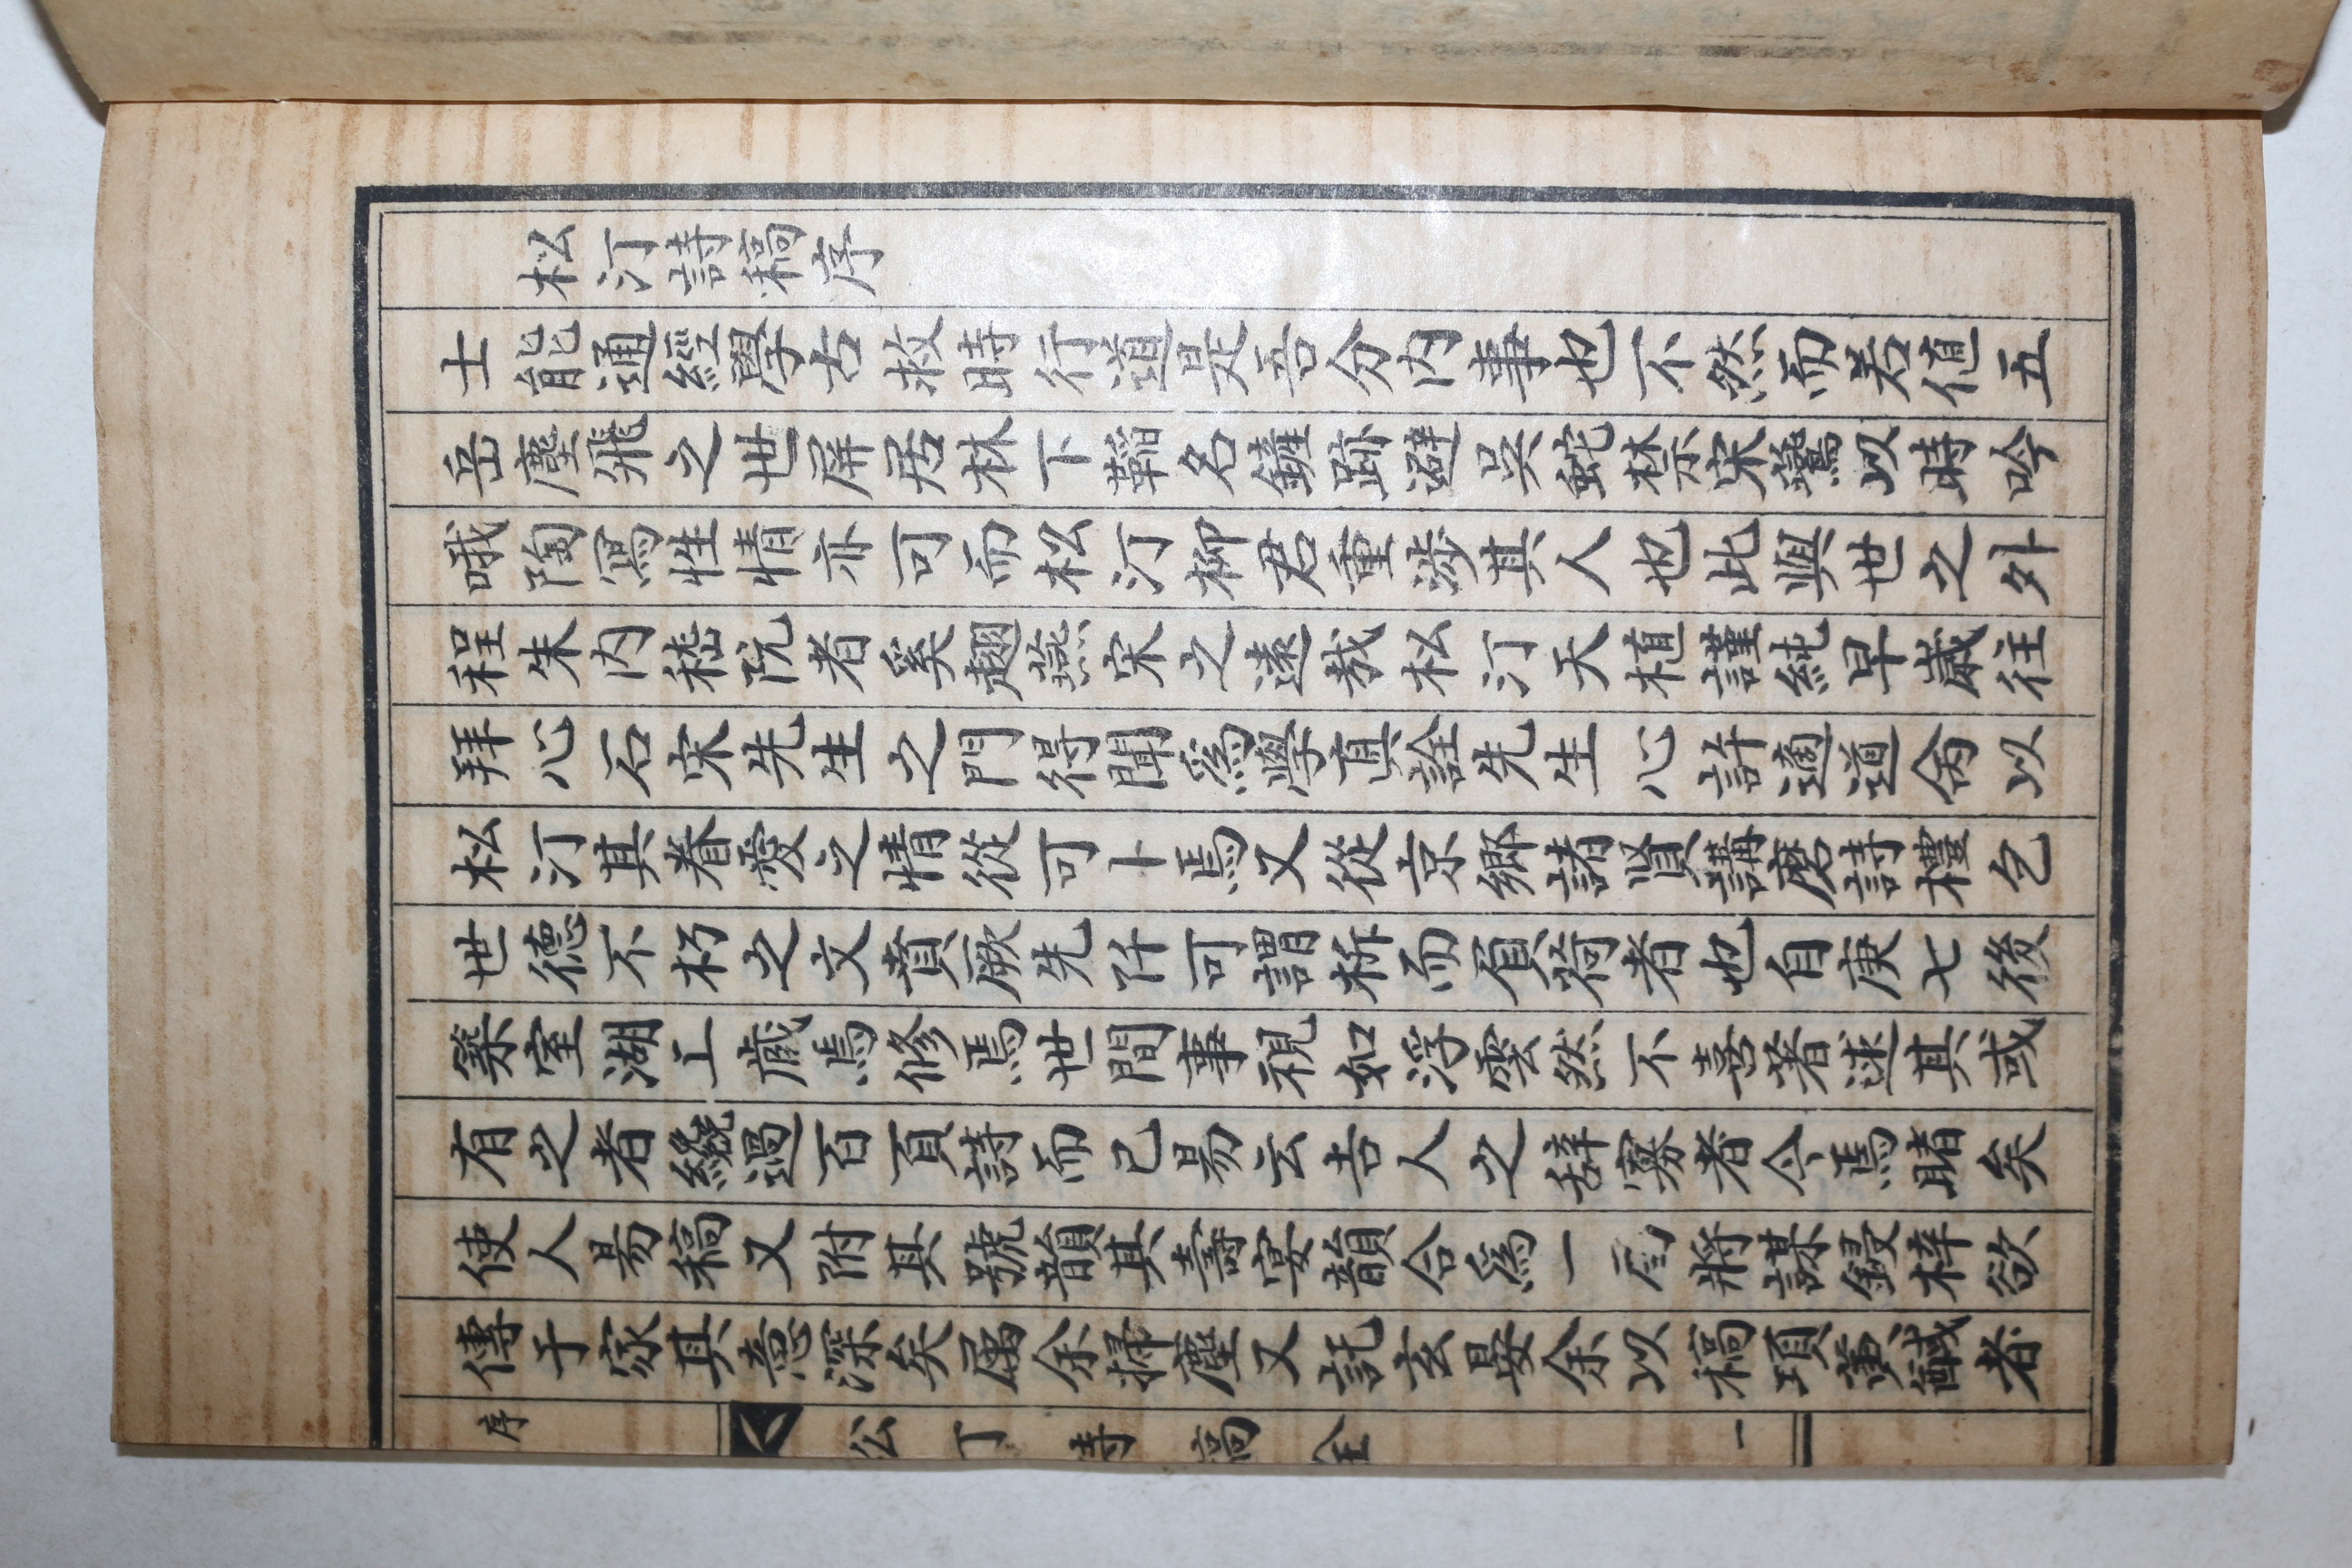 松汀詩稿序
士能通經學古救時行道是吾分內事也不然而若值五
岳塵飛之世屏居林下韜名鏟跡避吳蛇禁宋鶯以時吟
哦陶寫性情亦可而松汀柳君重涉其人也此與世之外
程朱內嵇阮者奚趐燕宋之遠哉松汀天植謹純早歲往
拜心石宋先生之門得聞爲學真詮先生心許適道肏以
松汀其眷愛之情從可卜焉又從京鄉諸賢講磨詩禮乞
世德不朽之文賁厥先阡可謂析而負荷者也自庚七後
築室湖工蔵焉修焉世間事視如浮雲然不喜著述其或
有之者纔過百頁詩而已易云吉人之辭寡者今焉睹矣
使人易稿又附其號韻其壽宴韻合爲一局將謀鋟梓欲
傳于家其意深矣属余掃塵又託玄晏余以稿項黃馘者
序　公丁寺高全　一